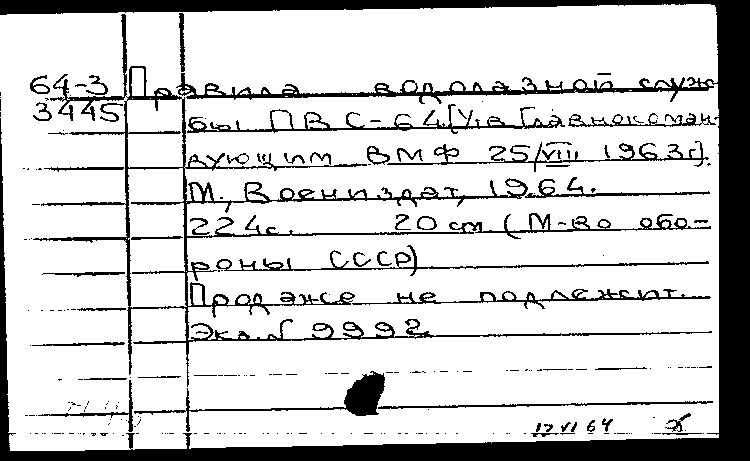 64-3 Правила водолазной служ-
3445 бы ПВС-64 [Утв Главнокоман-
дующим ВМФ 25/VIII 1963г].
М., Воениздат, 1964.
224с. 20 см (М-во обо-
роны СССР)
Продаже не подлежит.
Экз. № 9992
17 VI 64